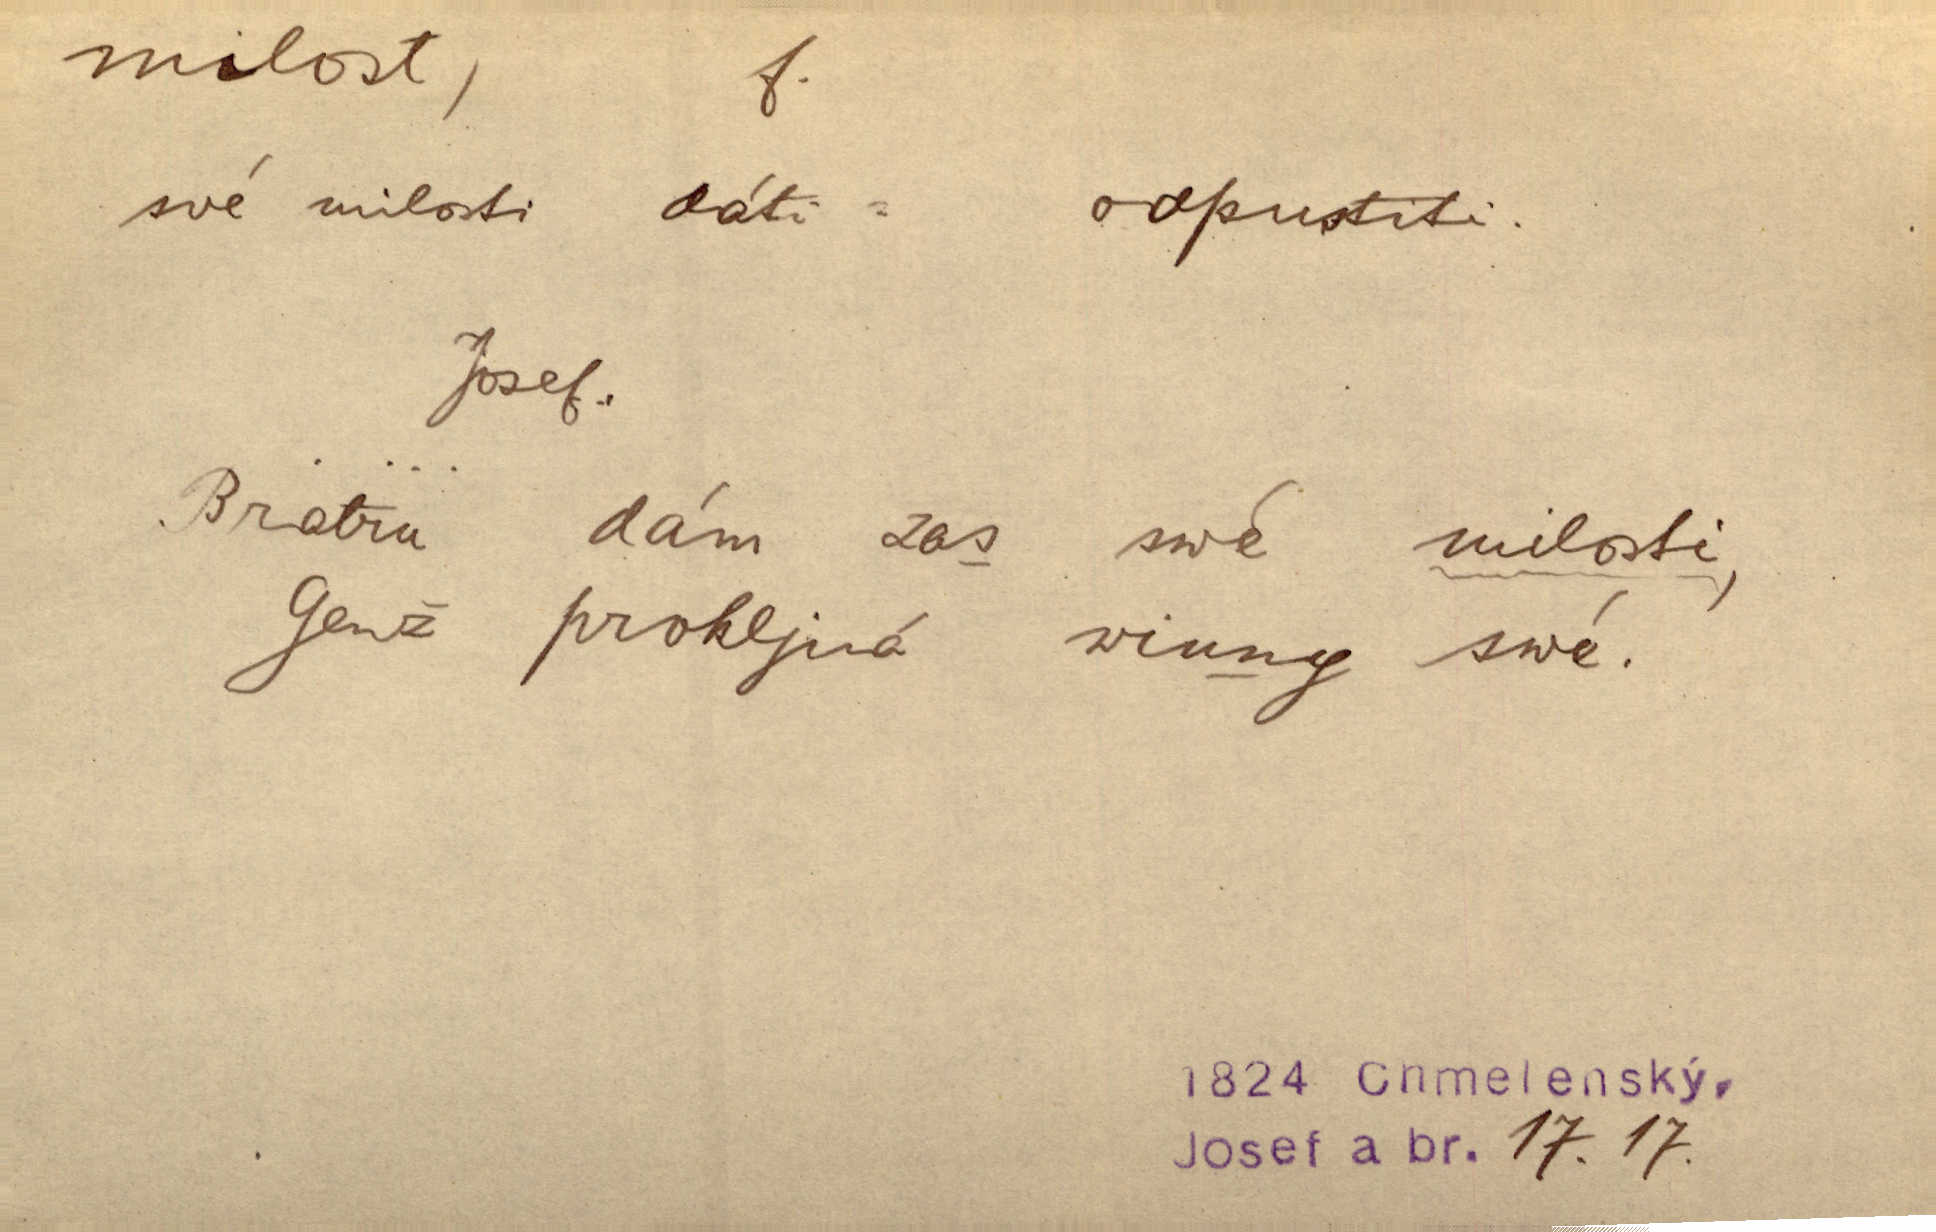 milost, f.
své milosti dáti = odpustiti.
Josef.
. ...
Bratru dám zas swé milosti,
Genž prokljná winny swé.
1824 Chmelenský,
Josef a br. 17. 17.